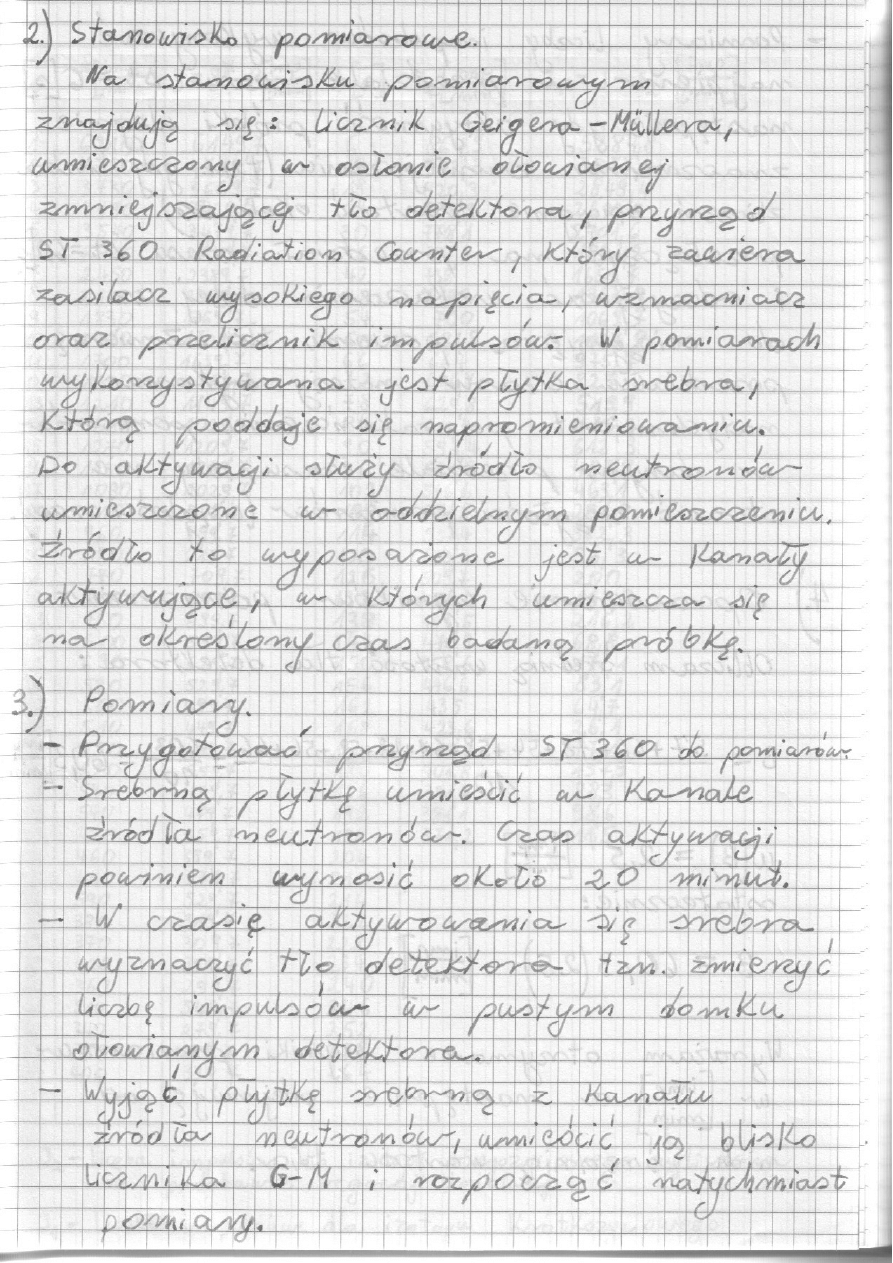 2.) Stanowisko pomiarowe.
Na stanowisku pomiarowym
znajdują się: licznik Geigera-Müllera,
umieszczony w osłonie ołowianej
zmniejszającej tło detektora, przyrząd
ST 360 Radiation Counter, który zawiera
zasilacz wysokiego napięcia, wzmacniacz
oraz przelicznik impulsów. W pomiarach
wykorzystywana jest płytka srebra,
którą poddaje się napromieniowaniu.
Do aktywacji służy źródło neutronów
umieszczone w oddzielnym pomieszczeniu.
Źródło to wyposażone jest w kanały
aktywujące, w których umieszcza się
na określony czas badaną próbkę.
3.) Pomiary.
- Przygotować przyrząd ST 360 do pomiarów.
- Srebrną płytkę umieścić w kanale
źródła neutronów. Czas aktywacji
powinien wynosić około 20 minut.
- W czasię aktywowania się srebra
wyznaczyć tło detektora tzn. zmierzyć
liczbę impulsów w pustym domku
ołowianym detektora.
- Wyjąć płytkę srebrną z kanału
źródła neutronów, umieścić ją blisko
licznika G-M i rozpocząć natychmiast
pomiary.